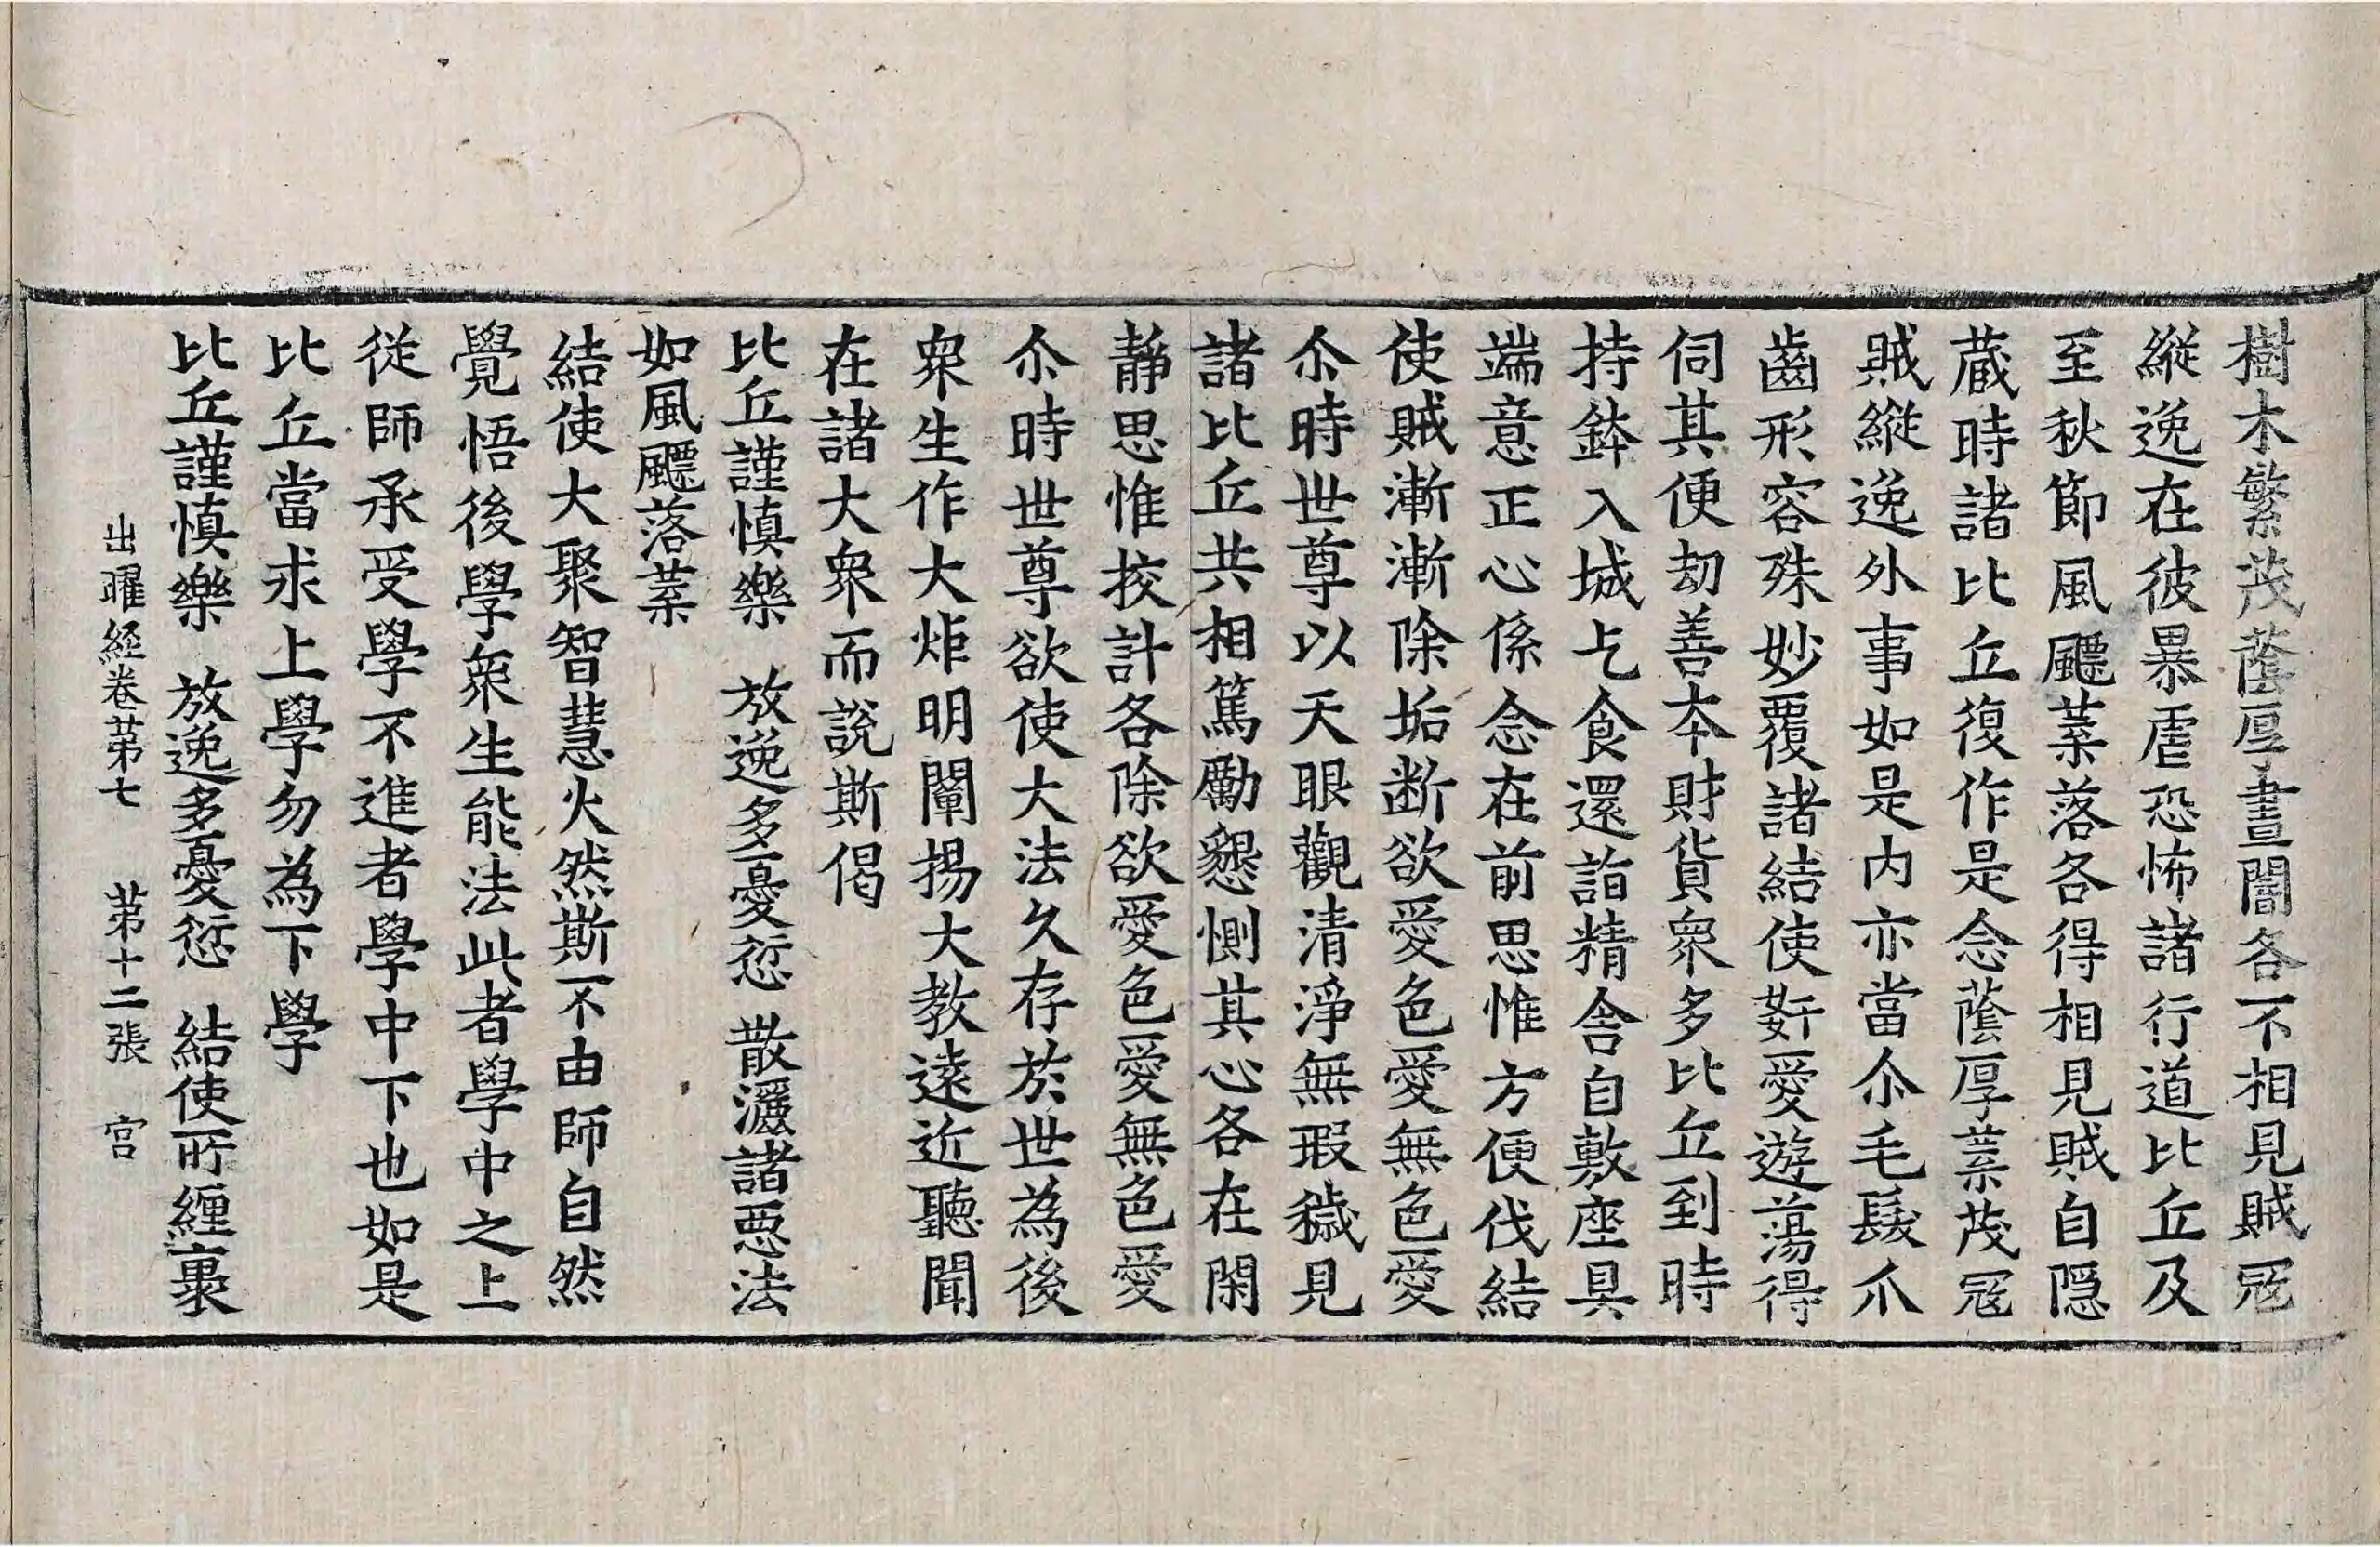 樹木繁茂蔭厚晝闇各不相見賊冦
縱逸在彼暴虐恐怖諸行道比丘及
至秋節風飃葉落各得相見賊自隱
蔵時諸比丘復作是念蔭厚葉茂冦
賊縱逸外事如是内亦當尒毛髮爪
齒形容殊妙覆諸結使姧愛遊蕩得
伺其便劫善夲財貨衆多比丘到時
持鉢入城乞食還詣精舎自敷座具
端意正心係念在前思惟方便伐結
使賊漸漸除垢断欲愛色愛無色愛
尒時世尊以天眼觀清淨無瑕穢見
諸比丘共相篤勵懇惻其心各在閑
静思惟挍計各除欲愛色愛無色愛
尒時世尊欲使大法久存於世為後
衆生作大炬明闡揚大教遠近聽聞
在諸大衆而說斯偈
比丘謹慎樂　放逸多憂愆　散灑諸惡法
如風飃落葉
結使大聚智慧火然斯不由師自然
覺悟後學衆生能法此者學中之上
從師承受學不進者學中下也如是
比丘當求上學勿為下學
比丘謹慎樂　放逸多憂愆　結使所纏裹
出曜経卷苐七　苐十二張　宫